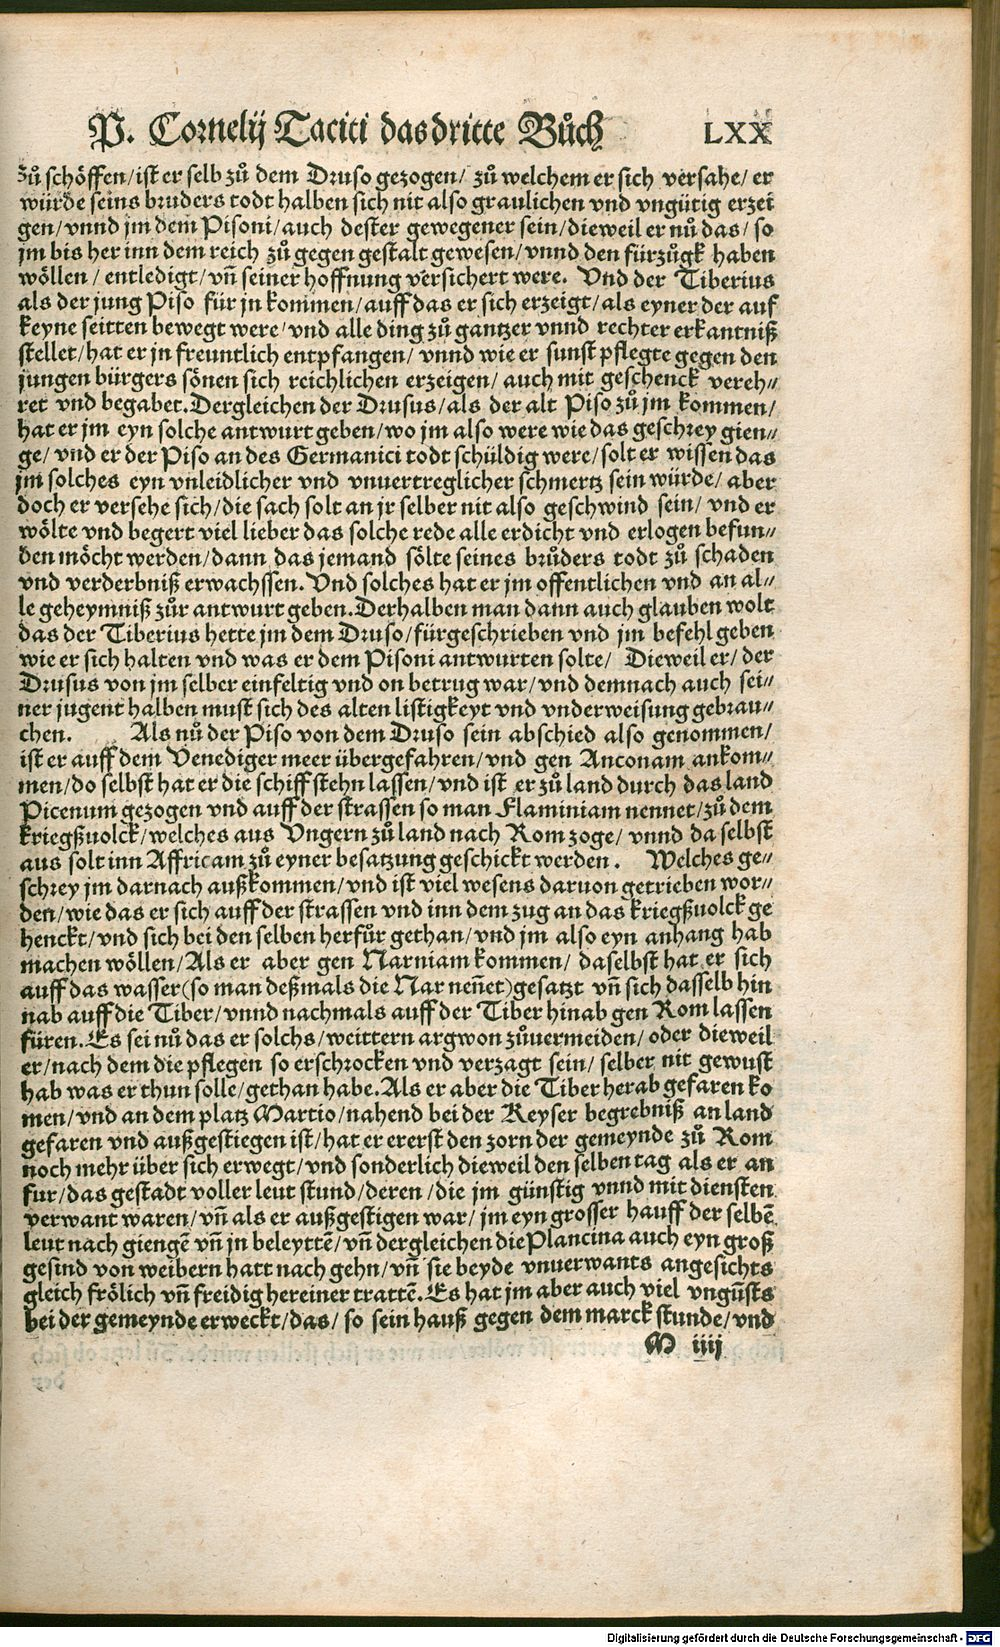 P. Cornelij Taciti das dritte Bůch LXX
zů schöffen/ ist er selb zů dem Druso gezogen/ zů welchem er sich versahe/ er
würde seins bruders todt halben sich nit also graulichen vnd vngütig erzei
gen/ vnnd jm dem Pisoni/ auch dester gewegener sein/ dieweil er nů das/ so
jm bis her inn dem reich zů gegen gestalt gewesen/ vnnd den fürzůgk haben
wöllen/ entledigt/ vn̄ seiner hoffnung versichert were. Vnd der Tiberius
als der jung Piso für jn kommen/ auff das er sich erzeigt/ als eyner der auf
keyne seitten bewegt were/ vnd alle ding zů gantzer vnnd rechter erkantniß
stellet/ hat er jn freuntlich entpfangen/ vnnd wie er sunst pflegte gegen den
jungen bürgers sönen sich reichlichen erzeigen/ auch mit geschenck vereh⸗
ret vnd begabet. Dergleichen der Drusus/ als der alt Piso zů jm kommen/
hat er jm eyn solche antwurt geben/ wo jm also were wie das geschrey gien⸗
ge/ vnd er der Piso an des Germanici todt schüldig were/ solt er wissen das
jm solches eyn vnleidlicher vnd vnuertreglicher schmertz sein würde/ aber
doch er versehe sich/ die sach solt an jr selber nit also geschwind sein/ vnd er
wölte vnd begert viel lieber das solche rede alle erdicht vnd erlogen befun⸗
den möcht werden/ dann das jemand sölte seines brůders todt zů schaden
vnd verderbniß erwachssen. Vnd solches hat er jm offentlichen vnd an al⸗
le geheymniß zůr antwurt geben. Derhalben man dann auch glauben wolt
das der Tiberius hette jm dem Druso/ fürgeschrieben vnd jm befehl geben
wie er sich halten vnd was er dem Pisoni antwurten solte/ Dieweil er/ der
Drusus von jm selber einfeltig vnd on betrug war/ vnd demnach auch sei⸗
ner jugent halben must sich des alten listigkeyt vnd vnderweisung gebrau⸗
chen. Als nů der Piso von dem Druso sein abschied also genommen/
ist er auff dem Venediger meer übergefahren/ vnd gen Anconam ankom⸗
men/ do selbst hat er die schiff stehn lassen/ vnd ist er zů land durch das land
Picenum gezogen vnd auff der strassen so man Flaminiam nennet/ zů dem
kriegßuolck/ welches aus Vngern zů land nach Rom zoge/ vnnd da selbst
aus solt inn Affricam zů eyner besatzung geschickt werden. Welches ge⸗
schrey jm darnach außkommen/ vnd ist viel wesens daruon getrieben wor⸗
den/ wie das er sich auff der strassen vnd inn dem zug an das kriegßuolck ge
henckt/ vnd sich bei den selben herfůr gethan/ vnd jm also eyn anhang hab
machen wöllen/ Als er aber gen Narniam kommen/ daselbst hat er sich
auff das wasser (so man deßmals die Nar nen̄et) gesatzt vn̄ sich dasselb hin
nab auff die Tiber/ vnnd nachmals auff der Tiber hinab gen Rom lassen
füren. Es sei nů das er solchs/ weittern argwon zůuermeiden/ oder dieweil
er/ nach dem die pflegen so erschrocken vnd verzagt sein/ selber nit gewust
hab was er thun solle/ gethan habe. Als er aber die Tiber herab gefaren ko
men/ vnd an dem platz Martio/ nahend bei der Keyser begrebniß an land
gefaren vnd außgestiegen ist/ hat er ererst den zorn der gemeynde zů Rom
noch mehr über sich erwegt/ vnd sonderlich dieweil den selben tag als er an
fur/ das gestadt voller leut stund/ deren/ die jm günstig vnnd mit diensten
verwant waren/ vn̄ als er außgestigen war/ jm eyn grosser hauff der selbē
leut nach giengē vn̄ jn beleyttē/ vn̄ dergleichen die Plancina auch eyn groß
gesind von weibern hatt nach gehn/ vn̄ sie beyde vnuerwants angesichts
gleich frölich vn̄ freidig hereiner trattē. Es hat jm aber auch viel vngūsts
bei der gemeynde erweckt/ das/ so sein hauß gegen dem marck stunde/ vnd
M iiij
Digitalisierung gefördert durch die Deutsche Forschungsgemeinschaft - DFG